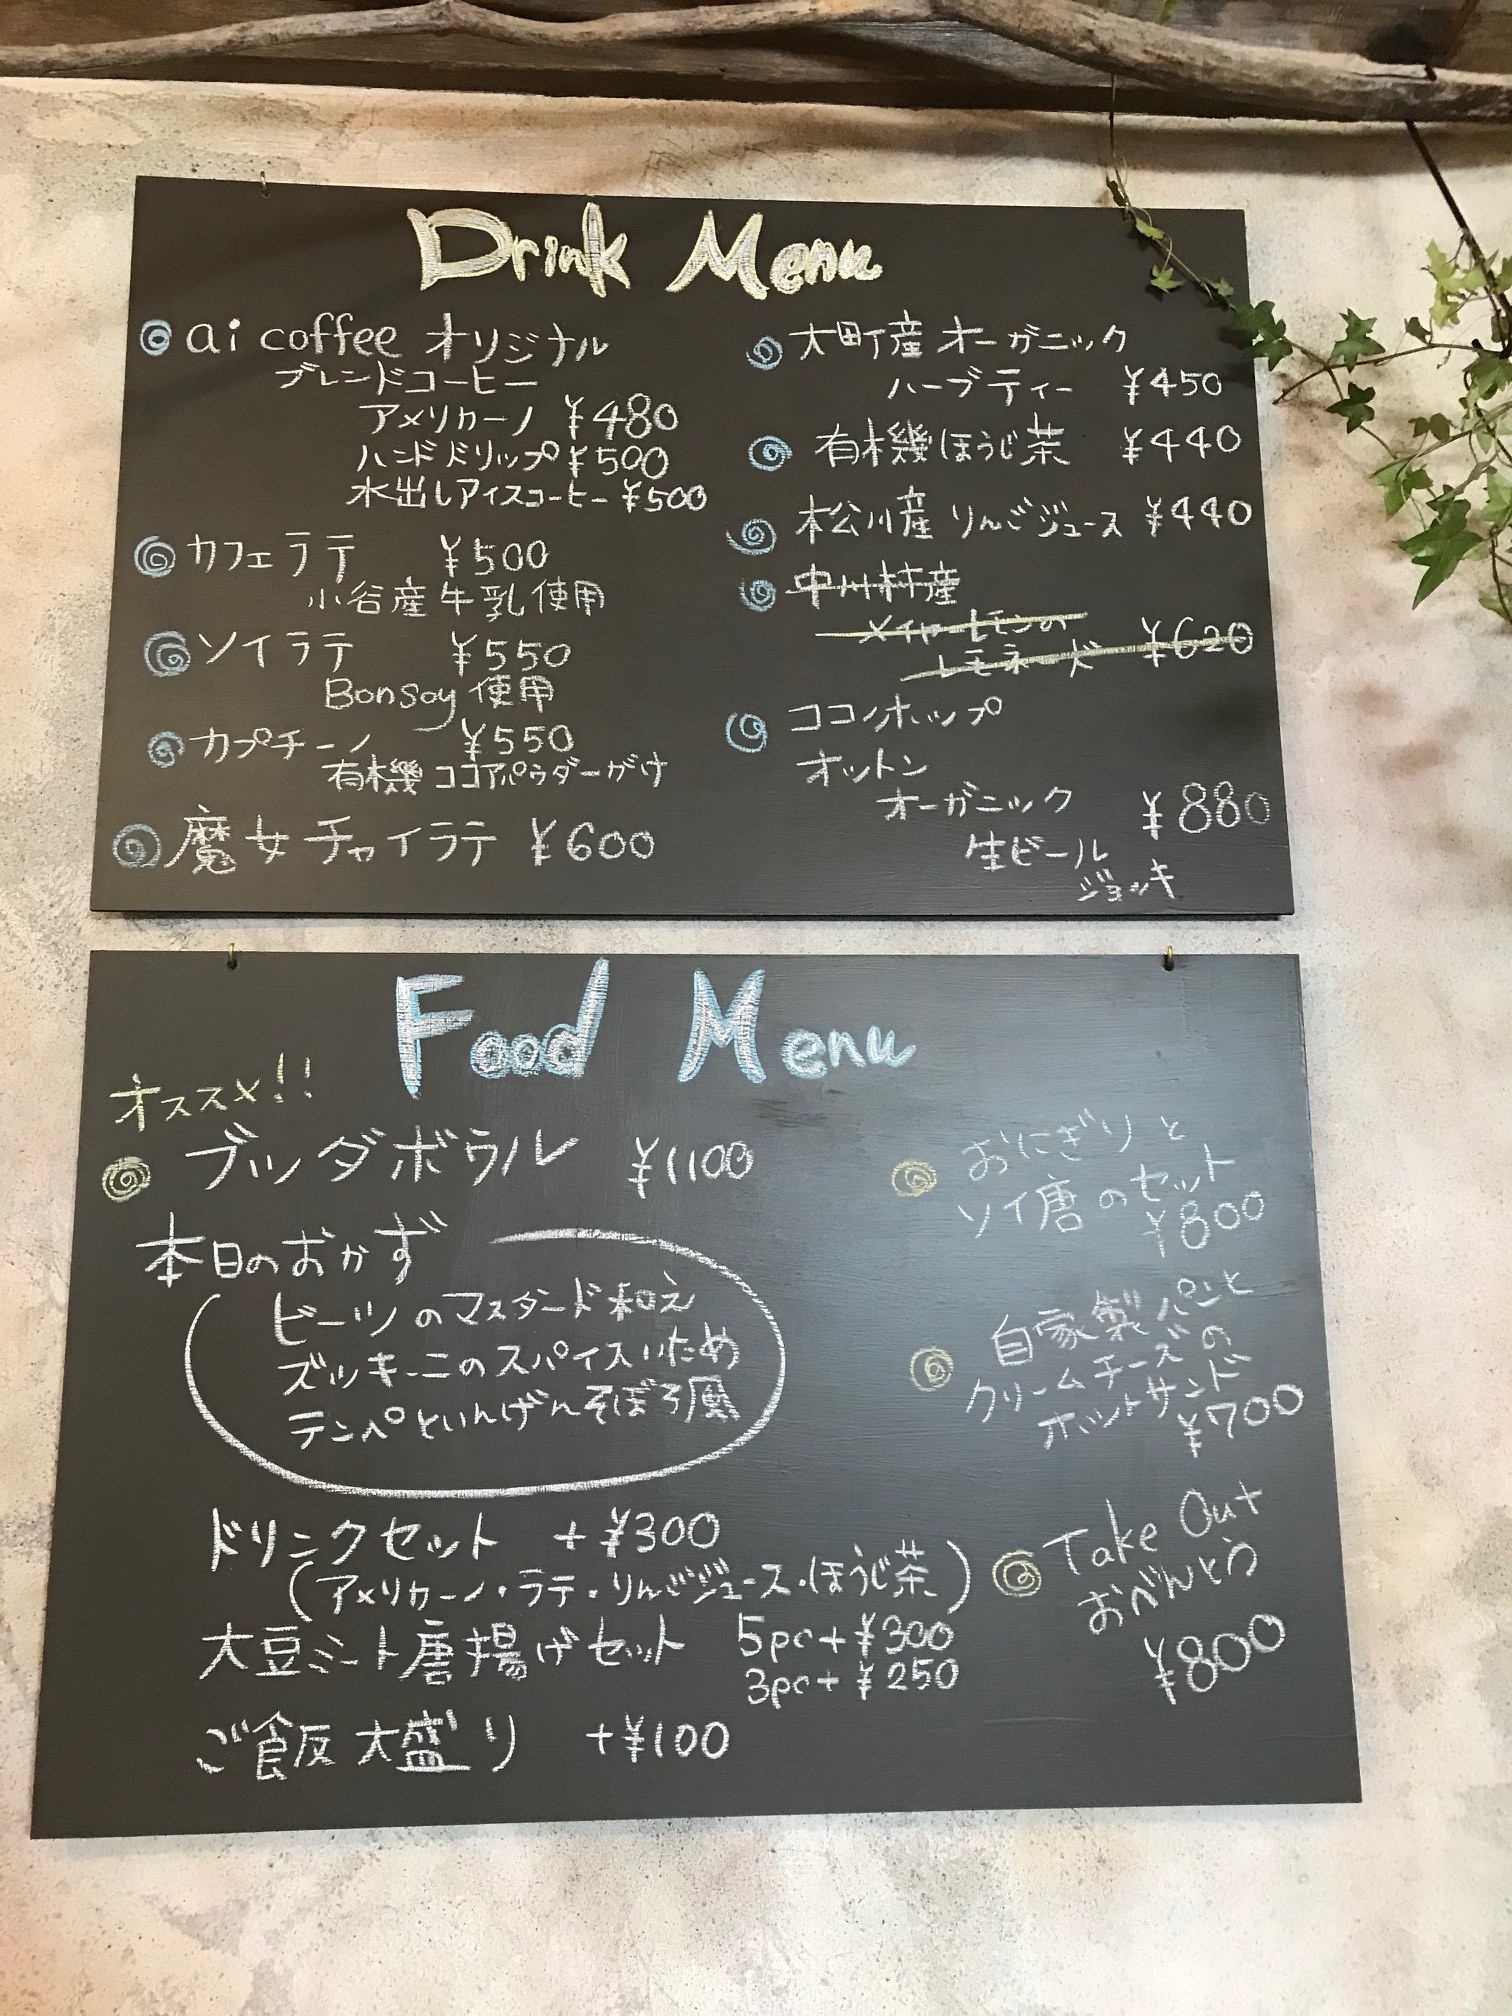 Drink Menu
ai coffee オリジナル
ブレンドコーヒー
アメリカーノ ¥480
ハンドドリップ ¥500
水出しアイスコーヒー ¥500
カフェラテ ¥500
小谷産牛乳使用
ソイラテ ¥550
Bonsoy 使用
カプチーノ ¥550
有機ココアパウダーがけ
魔女チャイラテ ¥600
大町産オーガニック
ハーブティー ¥450
有機ほうじ茶 ¥440
松川産りんごジュース ¥440
中川村産
メイヤーレモンの
レモネード ¥620
ココノホップ
オットン
オーガニック ¥880
生ビール
ジョッキ
Food Menu
オススメ!!
ブッダボウル ¥1100
本日のおかず
ビーツのマスタード和え
ズッキーニのスパイスいため
テンペといんげんそぼろ風
ドリンクセット +¥300
(アメリカーノ・ラテ・りんごジュース・ほうじ茶)
大豆ミート唐揚げセット 5pc+¥300
3pc+¥250
ご飯大盛り +¥100
おにぎりと
ソイ唐のセット
¥800
自家製パンと
クリームチーズの
ホットサンド
¥700
Take Out
おべんとう
¥800